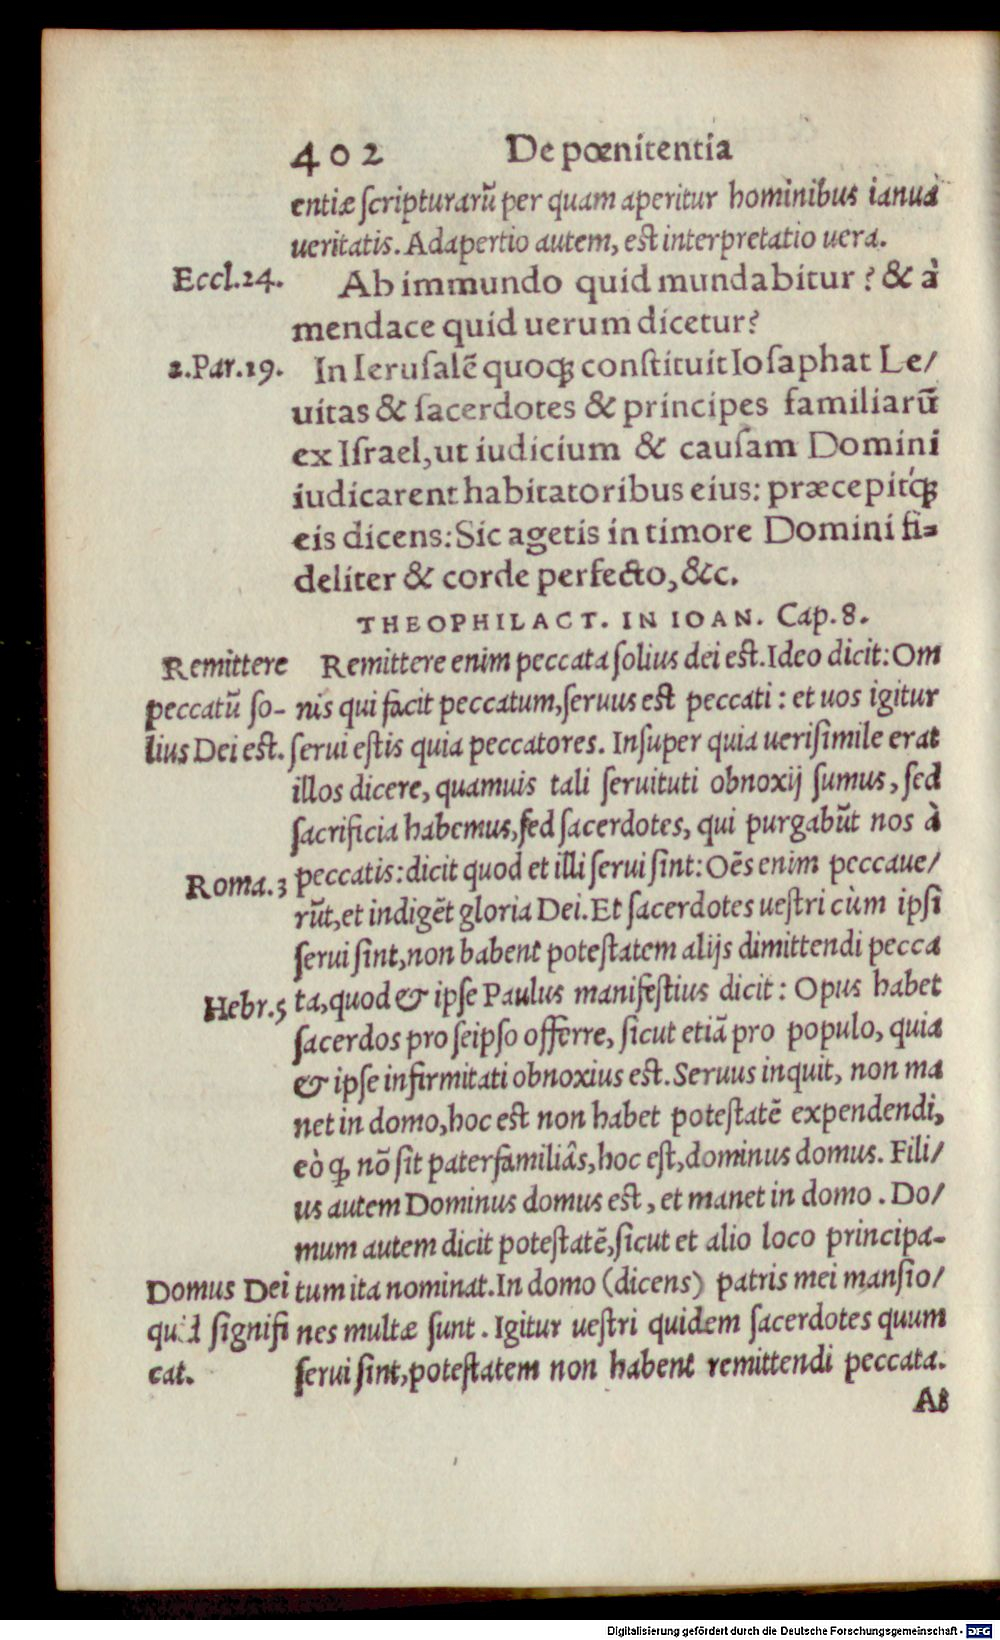 402 De pœnitentia
entiæ ſcripturarū per quam aperitur hominibus ianua
ueritatis. Adapertio autem, est interpretatio uera.
Eccl.24. Ab immundo quid mundabitur? & à
mendace quid uerum dicetur?
2.Par.19. In Ieruſalē quoqꝫ conſtituit Ioſaphat Le/
uitas & ſacerdotes & principes familiarū
ex Iſrael, ut iudicium & cauſam Domini
iudicarent habitatoribus eius: præcepitq́ꝫ
eis dicens: Sic agetis in timore Domini fi=
deliter & corde perfecto, &c.
THEOPHILACT. IN IOAN. Cap. 8.
Remittere Remittere enim peccata ſolius dei est. Ideo dicit: Om
peccatū ſo- nis qui facit peccatum, ſeruus est peccati: et uos igitur
lius Dei est. ſerui eſtis quia peccatores. Inſuper quia ueriſimile erat
illos dicere, quamuis tali ſeruituti obnoxij ſumus, ſed
ſacrificia habemus, ſed ſacerdotes, qui purgabūt nos à
peccatis: dicit quod et illi ſerui ſint: Oēs enim peccaue/
Roma.3 rūt, et indigēt gloria Dei. Et ſacerdotes ueſtri cùm ipſi
ſerui ſint, non babent poteſtatem alijs dimittendi pecca
Hebr.5 ta, quod & ipſe Paulus manifeſtius dicit: Opus habet
ſacerdos pro ſeipſo offerre, ſicut etiā pro populo, quia
& ipſe infirmitati obnoxius est. Seruus inquit, non ma
net in domo, hoc est non habet poteſtatē expendendi,
eò ꝙ nō ſit paterfamiliâs, hoc eſt, dominus domus. Fili/
us autem Dominus domus est, et manet in domo. Do/
mum autem dicit poteſtatē, ſicut et alio loco principa-
Domus Dei tum ita nominat. In domo (dicens) patris mei manſio/
quid ſignifi nes multæ ſunt. Igitur ueſtri quidem ſacerdotes quum
cat. ſerui ſint, poteſtatem non habent remittendi peccata.
AB
Digitalisierung gefördert durch die Deutsche Forschungsgemeinschaft - DFG